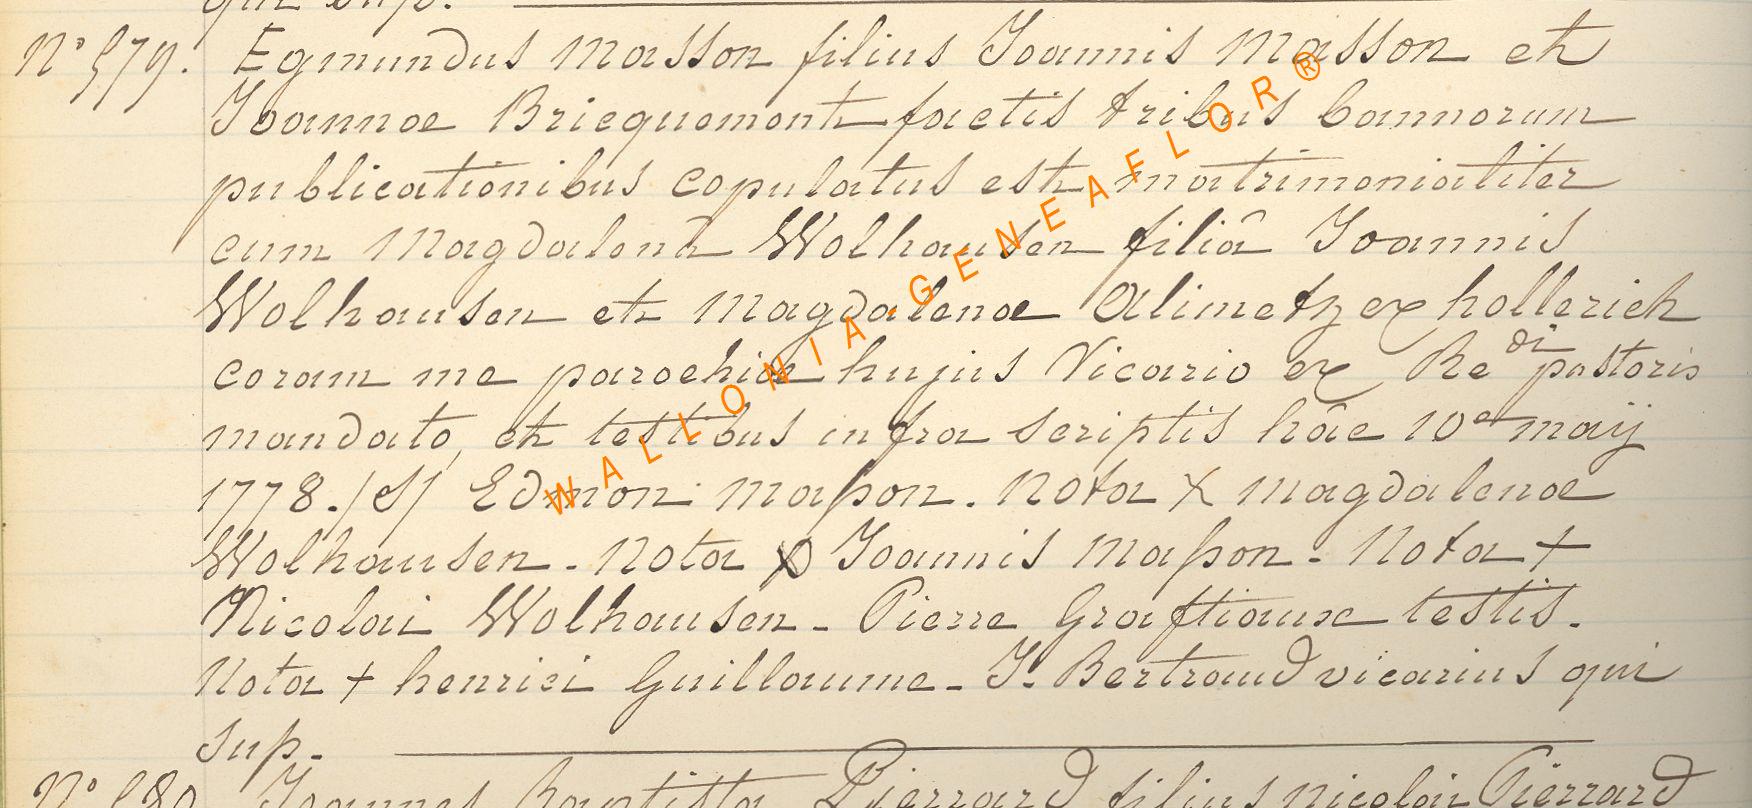 qui sup.
N° 579. Egmundus Masson filius Joannis Masson et
Joannae Bricquemont factis tribus bannorum
publicationibus copulatus est matrimonialiter
cum Magdalenâ Wolhausen filiâ Joannis
Wolhausen et Magdalenae Alimetz ex hollerich
coram me parochiae hujus Vicario ex Re di pastoris
mandato, et testibus infra scriptis hâc 10a maij
1778. /S/ Edmon Maſson. Nota X Magdalenae
Wolhausen - Nota X Joannis Maſson - Nota +
Nicolai Wolhausen - Pierre Graftiaux testis.
Nota + henrici Guillaume - J. Bertrand vicarius qui
sup.
N° 580 Joannes Baptista Pierrard filius Nicolai Pierrard
WALLONIA-GENEAFLOR®